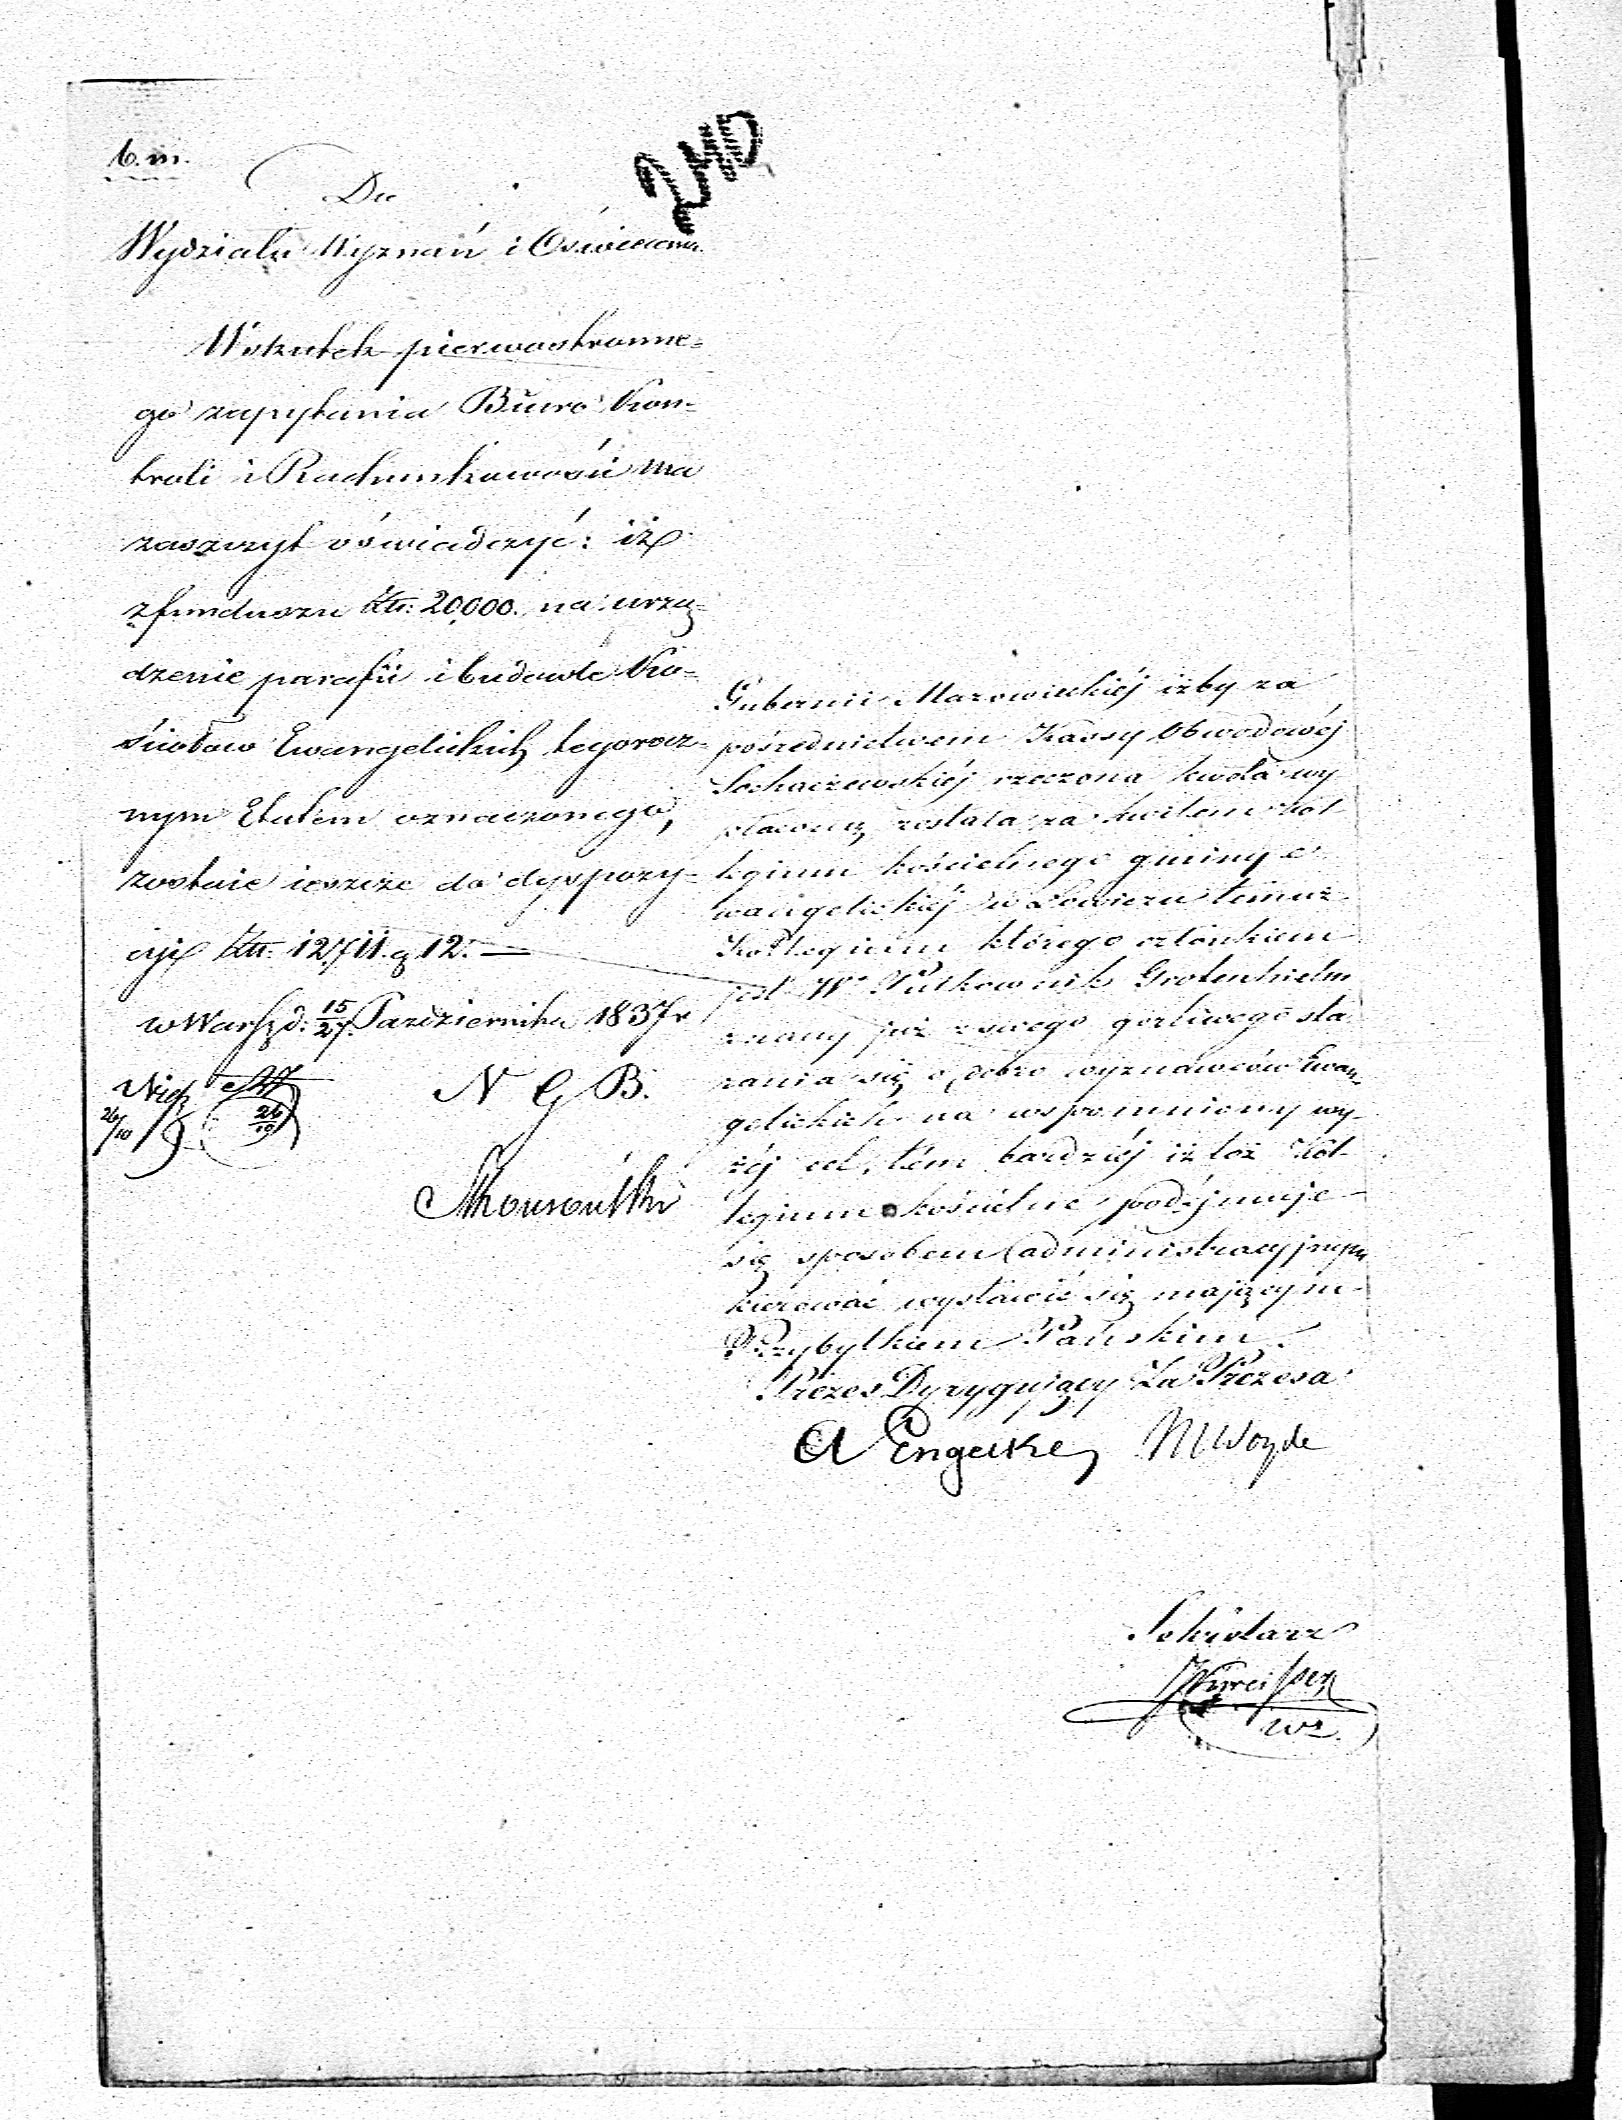 b. m.
240
Do
Wydziału Wyznań i Oświecenia
Wskutek pierwostronne=
go zapytania Biuro Kon=
troli i Rachunkowości ma
zaszczyt oświadczyć: iż
z funduszu Złt: 20,000. na urzą=
dzenie parafii i budowle Ko=
ściołów Ewangelickich tegorocz=
nym Etatem oznaczonego,
zostaie ieszcze do dyspozy=
cyi Złt. 12,711. g 12.
w Warsz d: 15/27 Pazdziernika 1837 r
N G B.
26/10
26/10
Gubernii Mazowieckiéj iżby za
pośrednictwem Kassy Obwodowéj
Sochaczewskiéj rzeczona kwota wy
płaconą została za kwitem Kol
legium kościelnego gminy e
wangelickiéj w Łowiczu temuż
Kollegium którego członkiem
jest Wn Pułkownik Grotenhielm
znany już z swego gorliwego sta
rania się o dobro wyznawców Ewan=
gelickich na wspomniony wy=
żéj cel, tém bardziéj iż toż Kol=
legium kościelne podéjmuje
się sposobem administracyjnym
kierować wystawić się mającym
Przybytkiem Pańskim.
Prezes Dyrygujący Za Prezesa
A Engelke M Woyde
Sekretarz
wz.